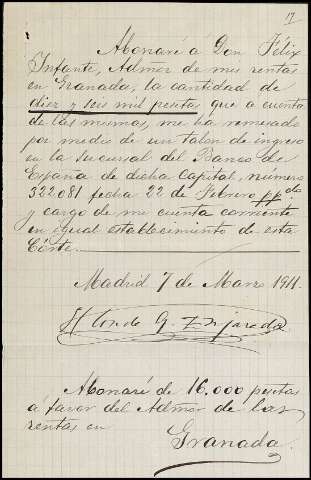 17
Abonaré a Don Félix
Infante, Admor de mis rentas
en Granada, la cantidad de
diez y seis mil pesetas que a cuenta
de las mismas, me ha remesado
por medio de un talon de ingreso
en la Sucursal del Banco de
España de dicha Capital, número
322081 fecha 22 de Febrero pp.do
y cargo de mi cuenta corriente
en igual establecimiento de esta
Córte.
Madrid 7 de Marzo 1911.
El Conde
Abonaré de 16.000 pesetas
a favor del Admor de las
rentas en
Granada.